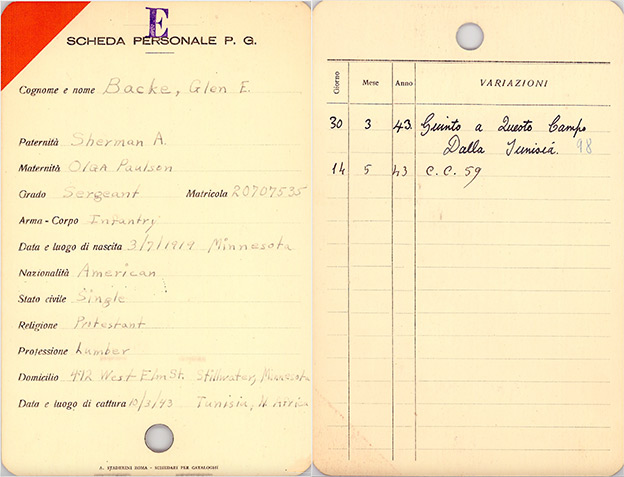 E
SCHEDA PERSONALE P. G.
Cognome e nome Backe, Glen E.
Paternità Sherman A.
Maternità Olga Paulson
Grado Sergeant Matricola 20707535
Arma - Corpo Infantry
Data e luogo di nascita 3/7/1919 Minnesota
Nazionalità American
Stato civile Single
Religione Protestant
Professione Lumber
Domicilio 412 West Elm St. Stillwater, Minnesota
Data e luogo di cattura /3/43 Tunisia, N. Africa
A. STADERINI ROMA - SCHEDARI PER CATALOGHI
Giorno Mese Anno VARIAZIONI
30 3 43. Giunto a Questo Campo
Dalla Tunisia. 98
14 5 43 C. C. 59